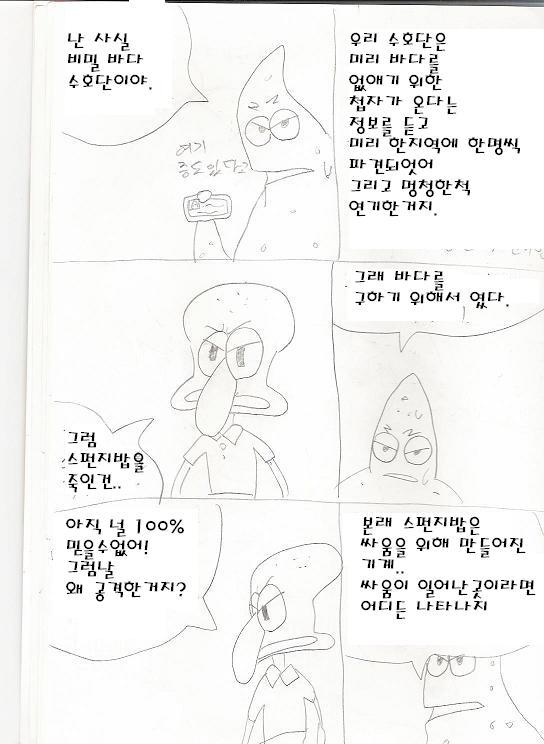 난 사실
비밀 바다
수호단이야.
여기
증도있다고
우리 수호단은
미리 바다를
없애기 위한
첩자가 온다는
정보를 듣고
미리 한지역에 한명씩
파견되엇어
그리고 멍청한척
연기한거지.
그럼
스펀지밥을
죽인건..
그래 바다를
구하기 위해서 였다.
아직 널 100%
믿을수없어!
그럼날
왜 공격한거지?
본래 스펀지밥은
싸움을 위해 만들어진
기계..
싸움이 일어난곳이라면
어디든 나타나지